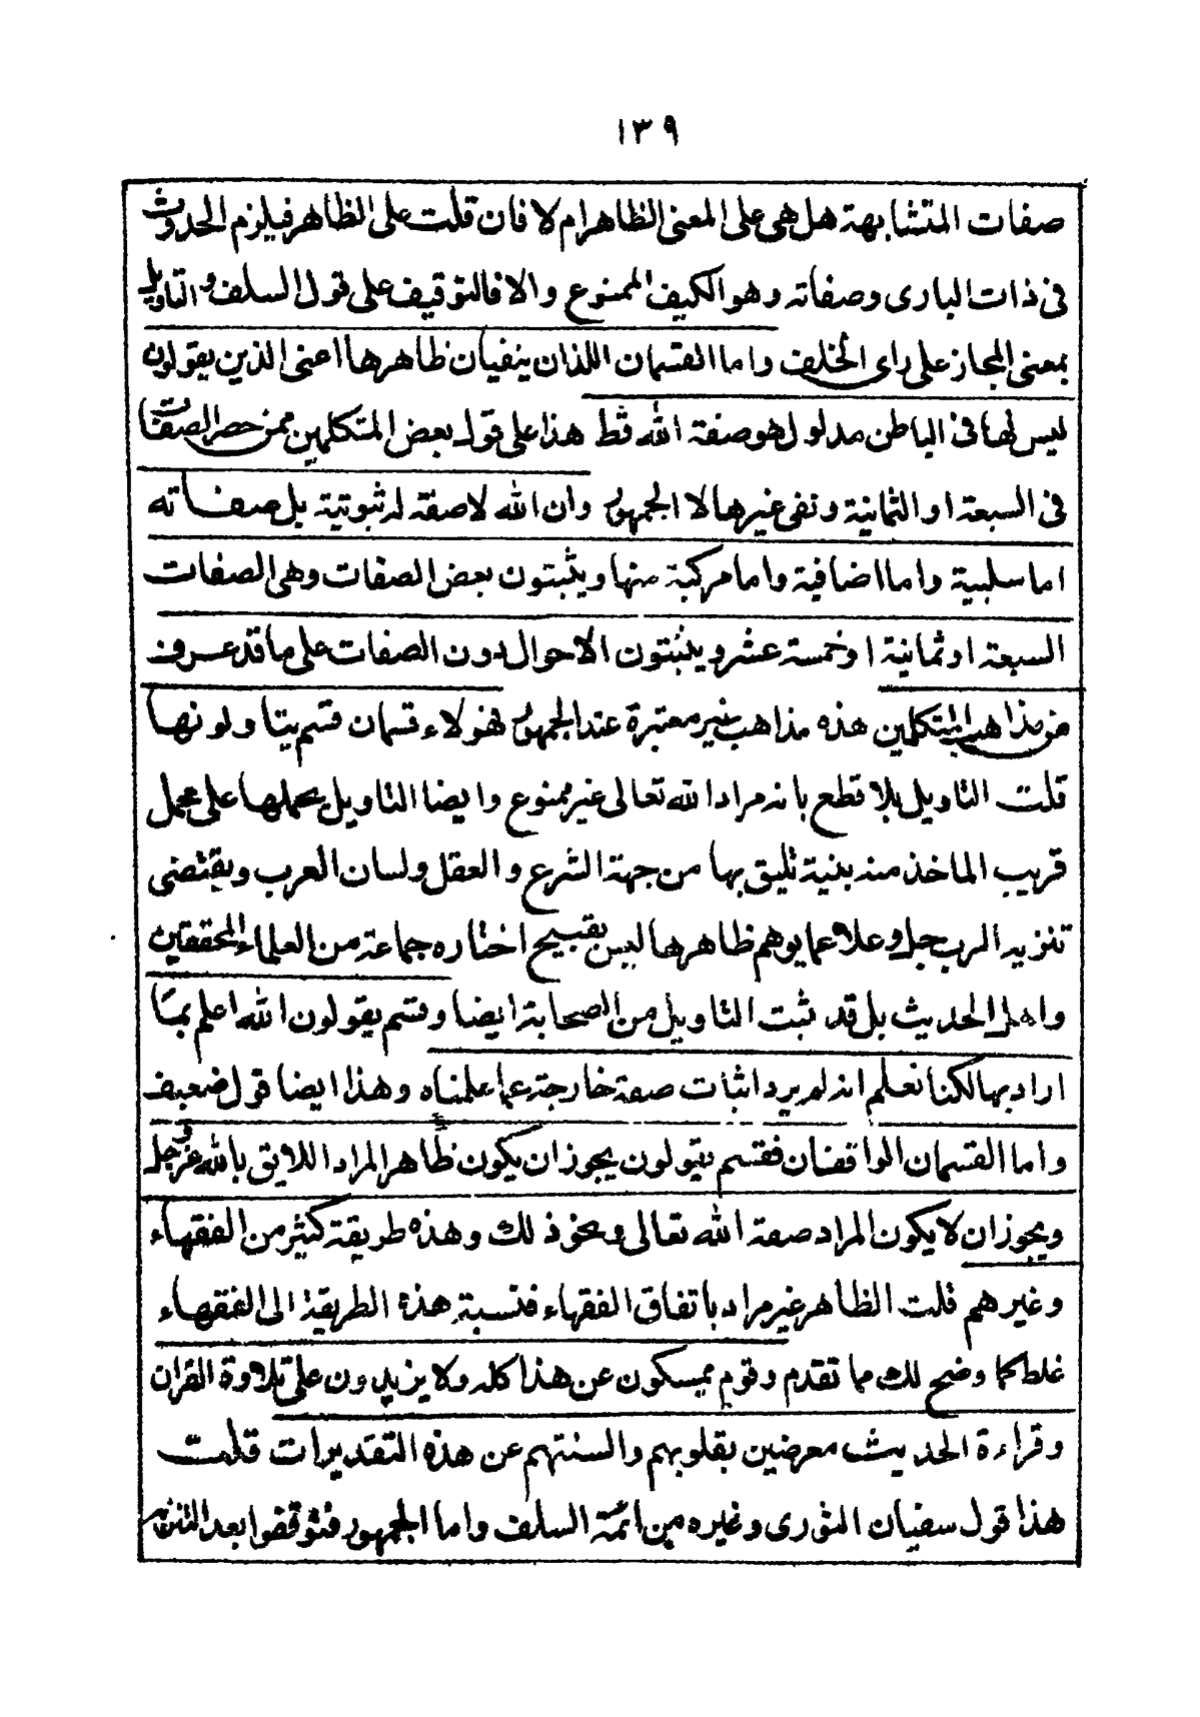 ١٣٩
صفات المتشابهة هل هى على المعنى الظاهر ام لا فان قلت على الظاهر فيلزم الحدوث
فى ذات البارى وصفاته وهو الكيف الممنوع والا فالتوقيف على قول السلف و التاويل
بمعنى المجاز على راى الخلف واما القسمان اللذان ينفيان ظاهرها اعنى الذين يقولون
ليس لها فى الباطن مدلول هو صفة الله قط هذا على قول بعض المتكلمين ممن حصر الصفات
فى السبعة او الثمانية ونفى غيرها لا الجمهور وان الله لا صفة له ثبوتية بل صفاته
اما سلبية واما اضافية واما مركبة منها ويثبتون بعض الصفات وهى الصفات
السبعة او ثمانية او خمسة عشر ويثبتون الاحوال دون الصفات على ما قد عرف
من مذاهب المتكلمين هذه مذاهب غير معتبرة عند الجمهور فهولاء قسمان قسم يتاولونها
قلت التاويل بلا قطع بانه مراد الله تعالى غير ممنوع وايضا التاويل بحملها على محمل
قريب الماخذ منه بنية تليق بها من جهة الشرع والعقل ولسان العرب ويقتضى
تنزيه الرب جل وعلا عما يوهم ظاهرها ليس بقبيح اختاره جماعة من العلماء المحققين
واهل الحديث بل قد ثبت التاويل من الصحابة ايضا وقسم يقولون الله اعلم بما
اراد بها لكنا نعلم انه لم يرد اثبات صفة خارجة عما علمناه وهذا ايضا قول ضعيف
واما القسمان الواقفان فقسم يقولون يجوز ان يكون ظاهر المراد اللايق بالله عز وجل
ويجوز ان لا يكون المراد صفة الله تعالى ونحو ذلك وهذه طريقة كثير من الفقهاء
وغيرهم قلت الظاهر غير مراد باتفاق الفقهاء فنسبة هذه الطريقة الى الفقهاء
غلط كما وضح لك مما تقدم وقوم يمسكون عن هذا كله ولا يزيدون على تلاوة القران
وقراءة الحديث معرضين بقلوبهم والسنتهم عن هذه التقديرات قلت
هذا قول سفيان الثورى وغيره من ائمة السلف واما الجمهور فتوقفوا بعد التنزيه